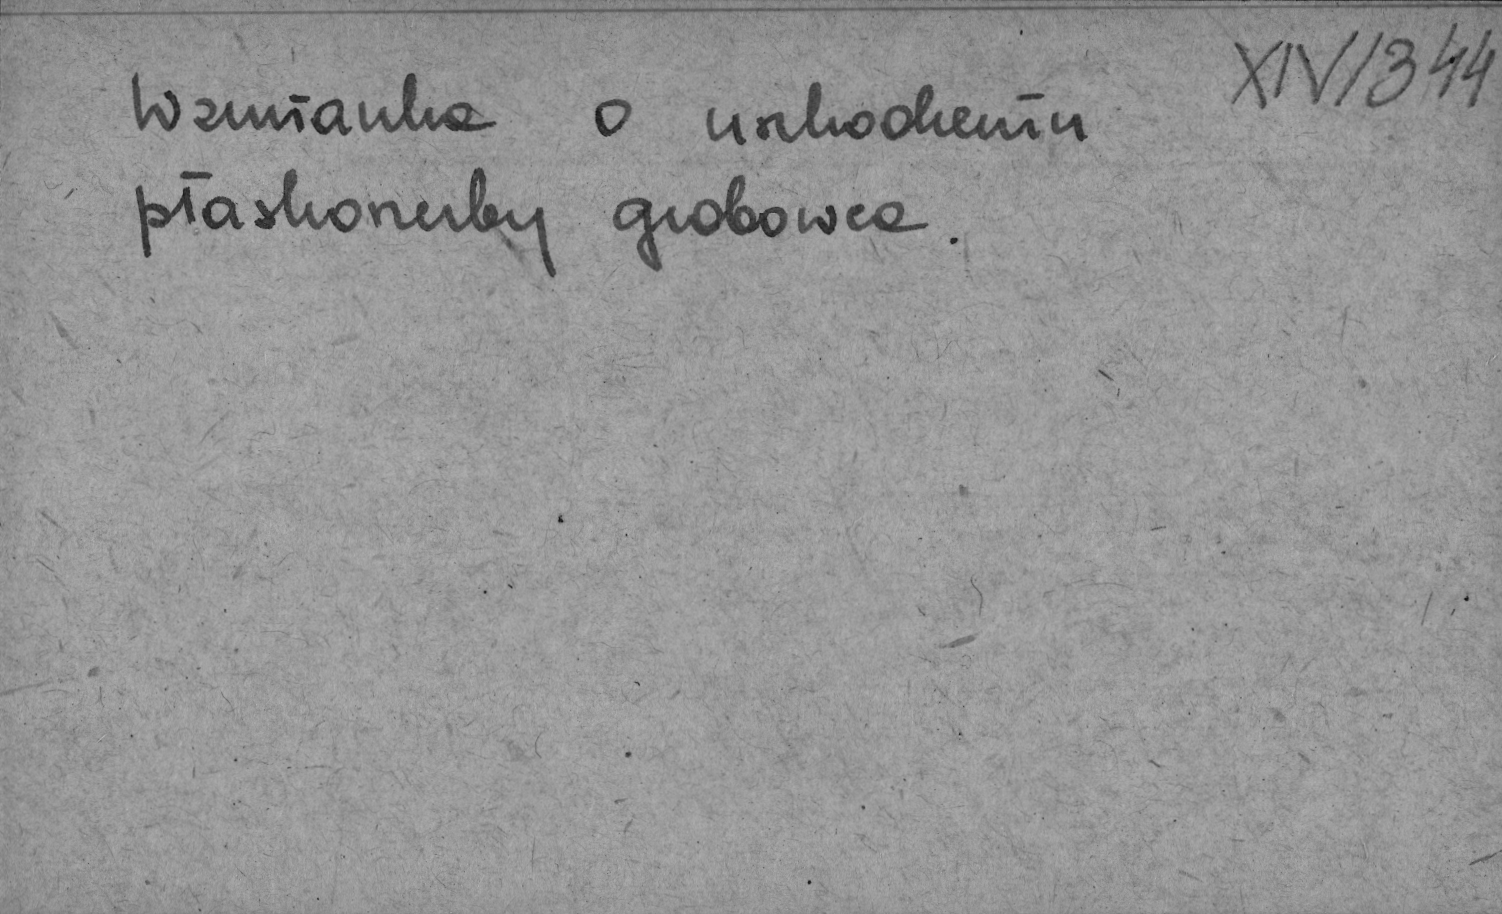 XIV/344
Wzmianka o uszkodzeniu
płaskorzeźby grobowca.